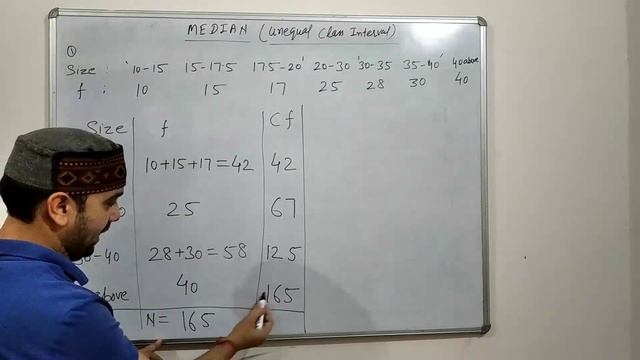 MEDIAN (Unequal Class Interval)
①
Size : 10-15 15-17.5 17.5-20 20-30 30-35 35-40 40 above
f : 10 15 17 25 28 30 40
Size f Cf
10+15+17=42 42
25 67
30-40 28+30=58 125
above 40 165
N= 165